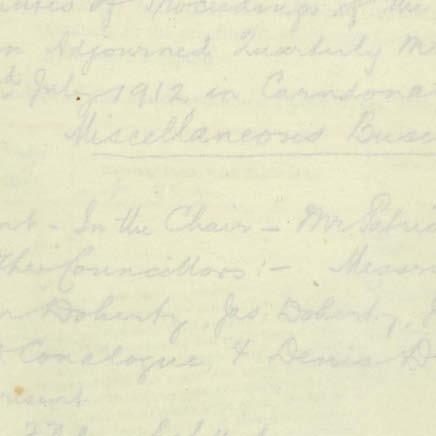 Proceedings of the
Adjourned Quarterly M
July 1912 in Carndona
Miscellaneous Busi
nt - In the Chair - Mr Patric
Councillors :- Messrs
Doherty, Jas Doherty, J
Conalogue, & Denis D
resent